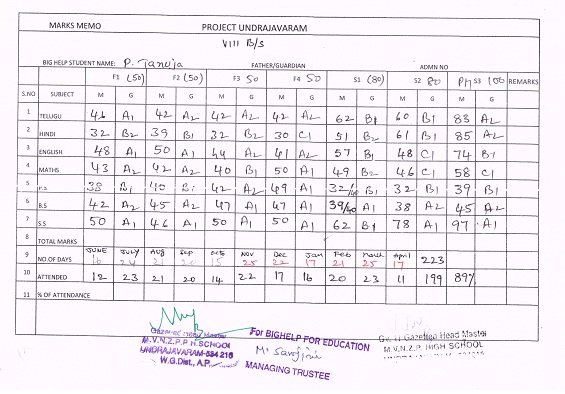 MARKS MEMO PROJECT UNDRAJAVARAM
VIII B/S
BIG HELP STUDENT NAME: P. Tanuja FATHER/GUARDIAN ADMN NO
F1 (50) F2 (50) F3 50 F4 50 S1 (80) S2 80 S3 100 REMARKS
S.NO SUBJECT M G M G M G M G M G M G M G
1 TELUGU 46 A1 42 A2 42 A2 42 A2 62 B1 60 B1 83 A2
2 HINDI 32 B2 39 B1 32 B2 30 C1 51 B2 61 B1 85 A2
3 ENGLISH 48 A1 50 A1 44 A2 41 A2 57 B1 48 C1 74 B1
4 MATHS 43 A2 42 A2 40 B1 50 A1 49 B2 46 C1 58 C1
5 P.S 38 B1 40 B1 42 A2 49 A1 32/40 B1 32 B1 39 B1
6 B.S 42 A2 45 A2 47 A1 47 A1 39/40 A1 38 A2 45 A2
7 S.S 50 A1 46 A1 50 A1 50 A1 62 B1 78 A1 97 A1
8 TOTAL MARKS
JUNE July Aug Sep Oct Nov Dec Jan Feb March April
9 NO.OF DAYS 16 24 21 20 15 25 22 17 21 25 17 223
10 ATTENDED 12 23 21 20 14 22 17 16 20 23 11 199 89%
11 % OF ATTENDANCE
Gazetted Head Master
M.V.N.Z.P.P.H.SCHOOL
UNDRAJAVARAM-534 216
W.G.Dist., A.P.
For BIGHELP FOR EDUCATION
M. Sarojini
MANAGING TRUSTEE
Gazetted Head Master
M.V.N.Z.P. HIGH SCHOOL